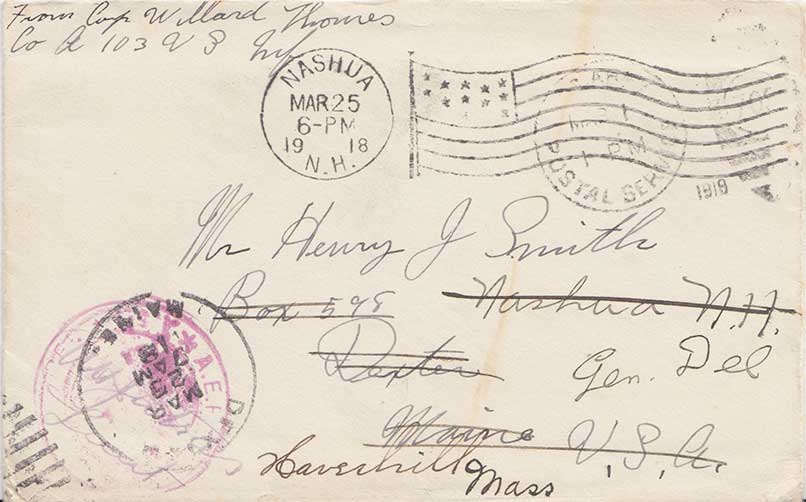 From Cop Willard Thomes
Co A 103 U S Inf
NASHUA
MAR 25
6-PM
1918
N.H.
1 PM
POSTAL SERVICE
1918
Mr Henry J Smith
Box 598
Nashua N.H.
Dexter
Gen. Del
Maine
U.S.A.
Haverhill
Mass
A.E.F.
MAINE
MAR